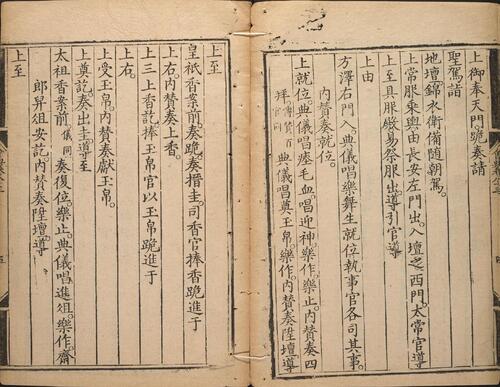 上御奉天門跪奏請
聖駕詣
地壇錦衣衛備隨朝駕
上常服乗輿由長安左門出入壇之西門太常官導
上至具服殿易祭服出導引官導
上由
方澤右門入典儀唱樂舞生就位執事官各司其事
内賛奏就位
上就位典儀唱瘞毛血唱迎神樂作樂止内賛奏四
拜 傳賛百官同 典儀唱奠玉帛樂作内賛奏陞壇導
上至
皇祇香案前奏跪奏搢圭司香官捧香跪進于
上右内賛奏上香
上三上香訖捧玉帛官以玉帛跪進于
上右
上受玉帛内賛奏獻玉帛
上奠訖奏出圭導至
太祖香案前 儀同 奏復位樂止典儀唱進俎樂作齋
郎舁俎安訖内賛奏陞壇導
上至